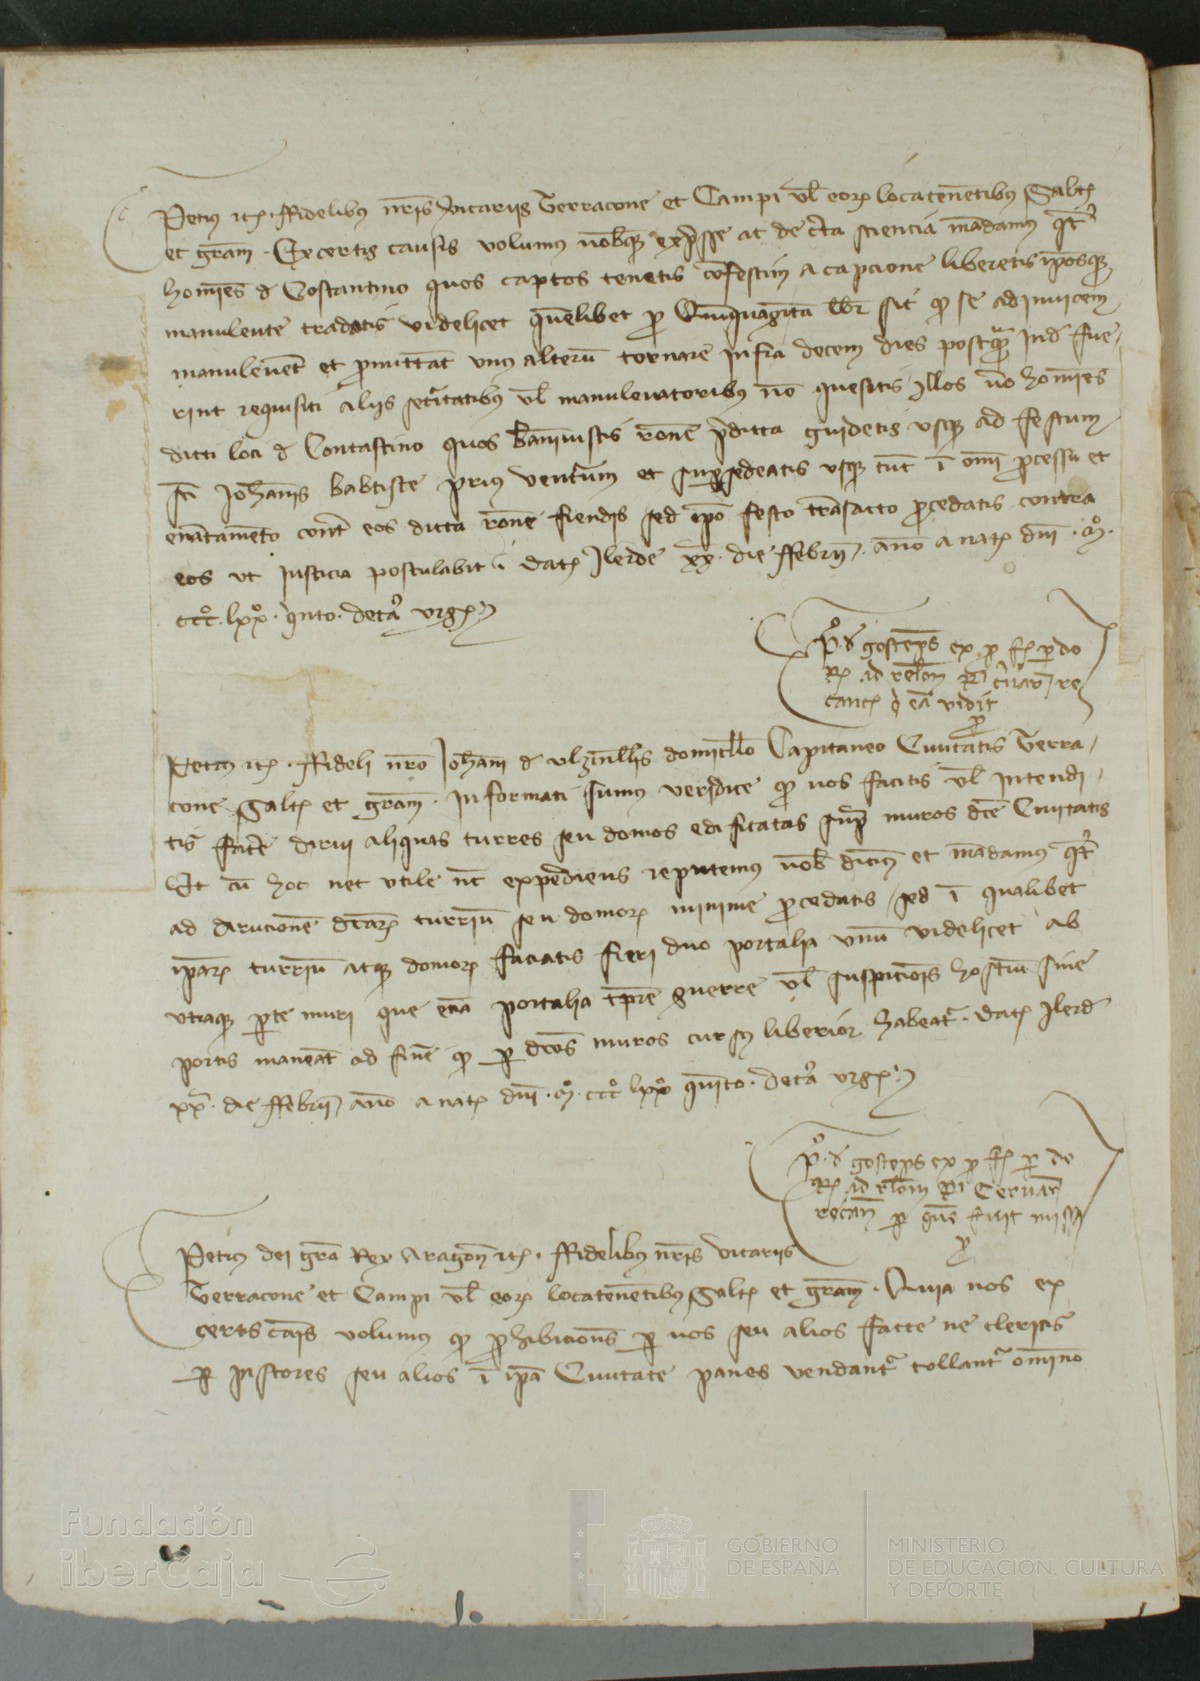 Petrus etc. ffidelibus nris vicariis Terracone et Campi vel eorum locatenetibus saltem
et gram. Ex certis causis volumus vobisque expsse ac de certa sciencia madamus qt
homies de Costantino quos captos tenetis cofestim a capcione liberetis ipsosque
manuleute tradatis videlicet quelibet pro Quinquaginta lbr sic quod se adinvicem
manuleuet et pmittat unus alteru tornare infra decem dies postqm inde fue
rint requisiti aliis securitatibus vel manuleuatoribus no quesitis illos vo homies
dicti loci de Contastino quos banuistis rone pdicta guidetis usque ad festum
sci Johanis babtiste prius venturum et supersedeatis usque tuc i omi pcessu et
enantameto cont eos dicta rone fiendis sed ipo festo transacto pcedatis contra
eos ut justicia postulabit. dat Ilerde xx. die ffebrii. ano a nat dni. M.
ccc. lxx. qnto. 
P. de gostemps ex p
ad relom P
qi ea vidit
p
Petrus etc. ffideli nro Johani de domicello Capitaneo Civitatis Terra
cone saltem et gram. Informati sumus veridice quod vos facitis vel intendi
tis facere dirui aliquas turres seu domos edificatas supra muros dce Civitatis
Et cu hoc nec utile nec expediens reputemus vob dicimus et madamus qt
ad dirucione dcarum turriu seu domorum minime pcedatis sed i qualibet
iparum turriu atque domorum faciatis fieri duo portalia unu videlicet ab
utraque pte muri que etia portalia tpre guerre vel suspicionis hostiu sine
portis maneat ad fine quod per dcos muros cursus liberior habeatr. dat Ilerde
xx. die ffebrii ano a nat dni. M. ccc lxx quito. 
P. de gostemps ex p per do
ad relom P Ceruar
p que fuit missa
p
Petrus dei gra Rex Aragon etc. ffidelibus nris vicariis
Terracone et Campi vel eorum locatenetibus saltem et gram. Quia nos ex
certis cais volumus quod phibicions per vos seu alios facte ne clericis
per pistores seu alios i ipa Civitate panes vendantr tollantr omnino
Fundación
iberCaja
GOBIERNO
DE ESPAÑA
MINISTERIO
DE EDUCACIÓN, CULTURA
Y DEPORTE